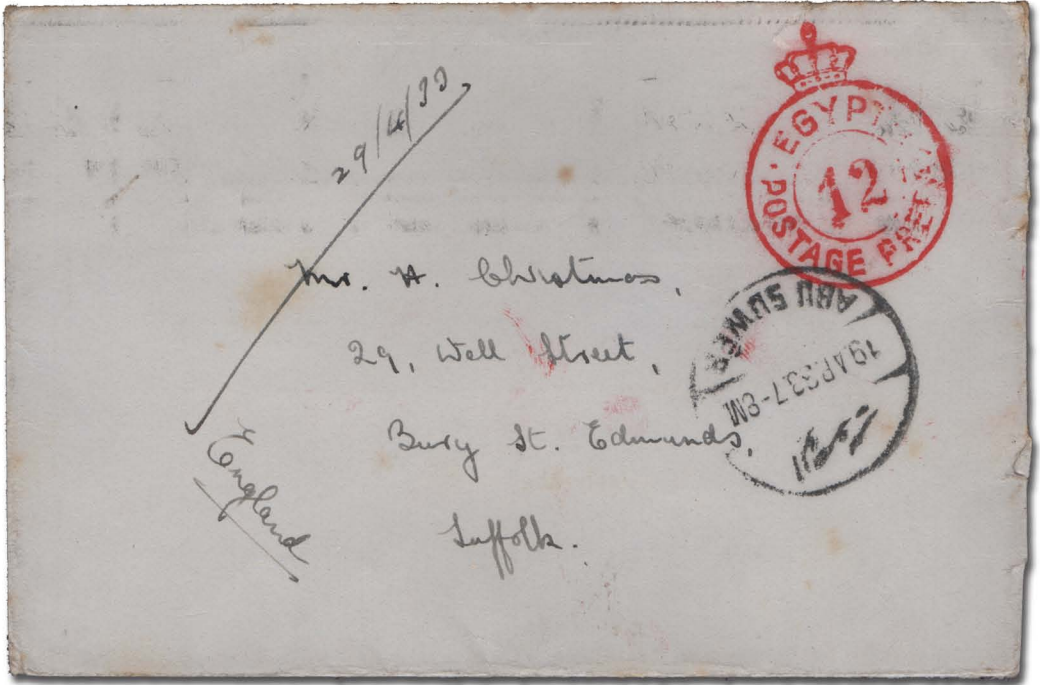 29/4/33
EGYPT
12
POSTAGE PREPAID
Mr. H. Christmas,
29, Well Street,
Bury St. Edmunds,
Suffolk.
England
ABU SUWEIR
19 AP 33.7-8M